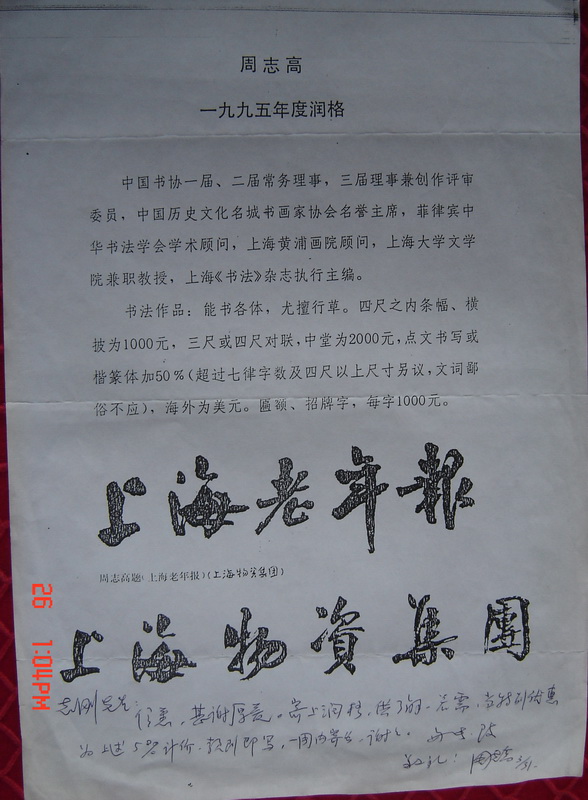 周志高
一九九五年度润格
中国书协一届、二届常务理事，三届理事兼创作评审
委员，中国历史文化名城书画家协会名誉主席，菲律宾中
华书法学会学术顾问，上海黄浦画院顾问，上海大学文学
院兼职教授，上海《书法》杂志执行主编。
书法作品：能书各体，尤擅行草。四尺之内条幅、横
披为1000元，三尺或四尺对联，中堂为2000元，点文书写或
楷篆体加50%（超过七律字数及四尺以上尺寸另议，文词鄙
俗不应），海外为美元。匾额、招牌字，每字1000元。
上海老年報
周志高题：上海老年报）（上海物资集团）
上海物資集團
志刚先生 信悉，甚谢厚爱。寄上润格，供了解。若需，当特别优惠
为上述5折计价，款到即写，一周内寄出，谢谢。
敬礼！ 周志高 3/31.
26 1:04PM